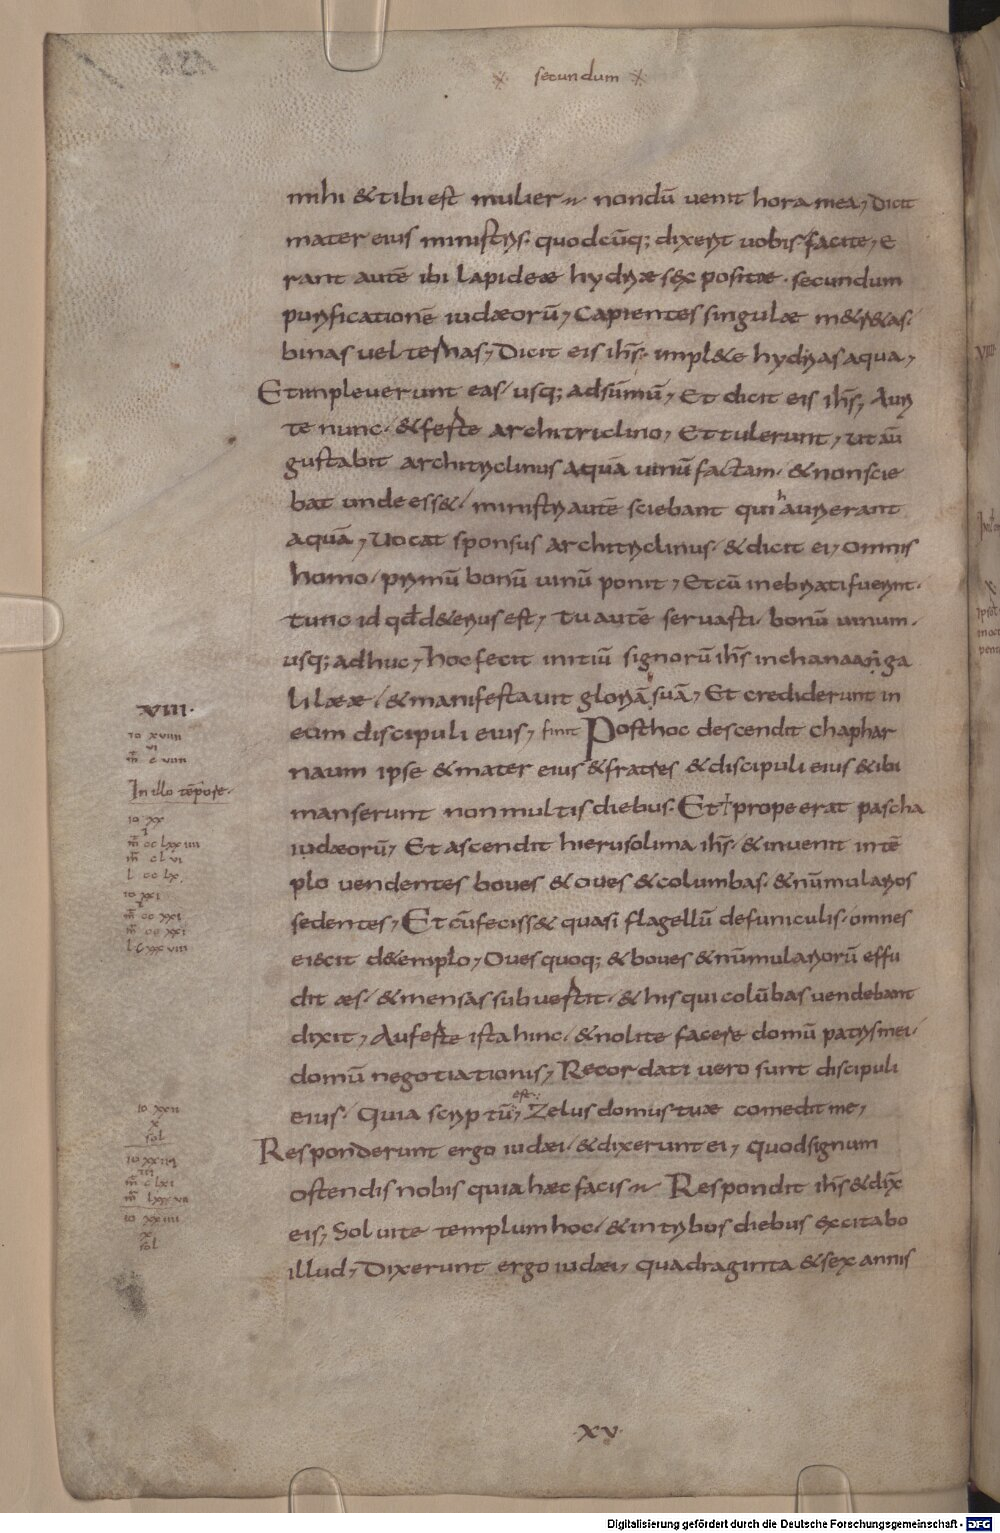 secundum
mihi & tibi est mulier nondū venit hora mea, Dicit
mater eius ministris. quodcūq; dixerit uobis facite, E
rant autē ibi lapideæ hydriæ sex positæ. secundum
purificationē iudæorū, Capientes singulæ m&r&as.
binas vel ternas, Dicit eis ihs. impl&e hydrias aqua,
Et impleverunt eas, usq; ad sūmū, Et dicit eis ihs, Auri
te nunc. & ferte architriclino, Et tulerunt, ut aū
gustabit architriclinus aquā uinū factam. & non scie
bat unde ess&, ministri autē sciebant qui hauxerant
aquā, Uocat sponsus architriclinus. & dicit ei, Omnis
homo, primū bonū uinū ponit, Et cū inebriati fuerint.
tunc id qd d&erius est, Tu autē servasti. bonū uinum.
usq; adhuc, hoc fecit initiū signorū ihs in chanaan ga
lilææ, & manifestavit gloriā suā, Et crediderunt in
eum discipuli eius, finit Post hoc descendit chaphar
naum ipse & mater eius & fratres & discipuli eius & ibi
manserunt non multis diebus. Et prope erat pascha
iudæorū, Et ascendit hierusolima ihs, & invenit in tē
plo vendentes boues & oues & columbas. & nūmularios
sedentes, Et cū feciss& quasi flagellū de funiculis, omnes
eiecit d&emplo, Oues quoq; & boues & nūmulariorū effu
dit æs, & mensas subvertit. & his qui colūbas vendebant
dixit, Auferte ista hinc, & nolite facere domū patris mei,
domū negotiationis, Recordati vero sunt discipuli
eius. Quia scriptū est, Zelus domus tuæ comedit me,
Responderunt ergo iudæi. & dixerunt ei, Quod signum
ostendis nobis quia hæc facis Respondit ihs & dix
eis, Solvite templum hoc, & in tribus diebus excitabo
illud, Dixerunt ergo iudæi, quadraginta & sex annis
XIII.
IO XVIIII
VI
m̄ C VIIII
In illo tēpore.
IO XX
I
m̄ CC LXX IIII
m̄ CL VI
L CC LX
IO XXI
I
m̄ CC XXI
m̄ CC XXI
L C XXX VIII
IO XXII
X
sol
IO XXIII
IIII
m̄ C LXI
m̄ LXXX VII
IO XXIIII
X
sol
XV
Digitalisierung gefördert durch die Deutsche Forschungsgemeinschaft - DFG